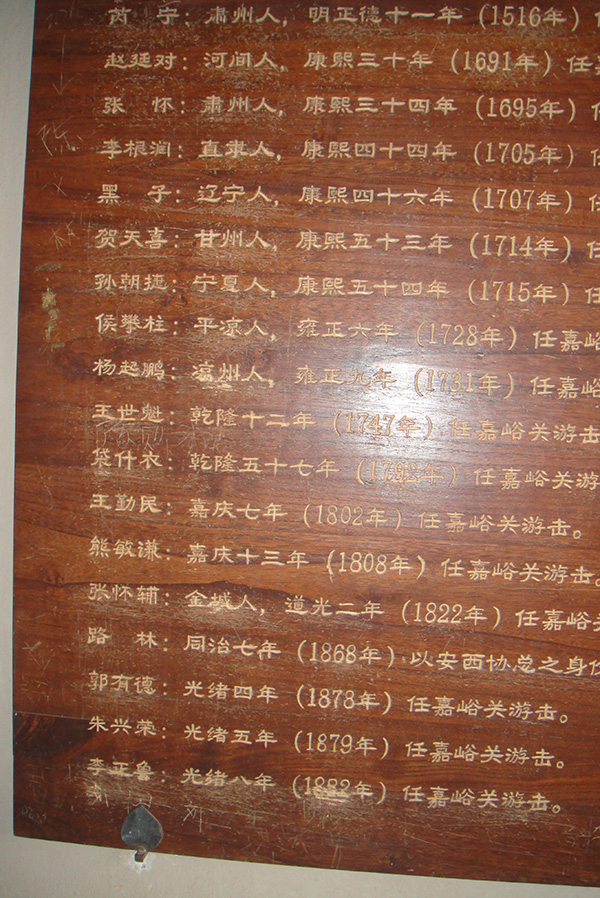 芮　宁：肃州人，明正德十一年（1516年）
赵廷对：河间人，康熙三十年（1691年）任嘉
张　怀：肃州人，康熙三十四年（1695年）任
李根润：直隶人，康熙四十四年（1705年）任
黑　子：辽宁人，康熙四十六年（1707年）任
贺天喜：甘州人，康熙五十三年（1714年）任
孙朝捷：宁夏人，康熙五十四年（1715年）任
侯攀柱：平凉人，雍正六年（1728年）任嘉峪
杨起鹏：凉州人，雍正九年（1731年）任嘉峪
王世魁：乾隆十二年（1747年）任嘉峪关游击。
袋什衣：乾隆五十七年（1792年）任嘉峪关游
王勤民：嘉庆七年（1802年）任嘉峪关游击。
熊敏谦：嘉庆十三年（1808年）任嘉峪关游击。
张怀辅：金城人，道光二年（1822年）任嘉峪关
路　林：同治七年（1868年）以安西协总之身份
郭有德：光绪四年（1878年）任嘉峪关游击。
朱兴荣：光绪五年（1879年）任嘉峪关游击。
李正鲁：光绪八年（1882年）任嘉峪关游击。